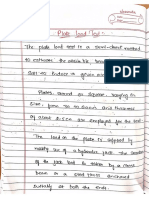 Plate Load Test :-
The plate load test is a semi-direct method
to estimate the allowable
soil to induce a given amount
Plates, round or square, ranging in
size, from 30 to 60 cm and thickness
of about 2.5 cm are employed for the test.
The load on the plate is applied by
making use of a hydraulic jack. The reaction
of the jack load is taken by a cross
beam or a steel truss anchored
suitably at both the ends.